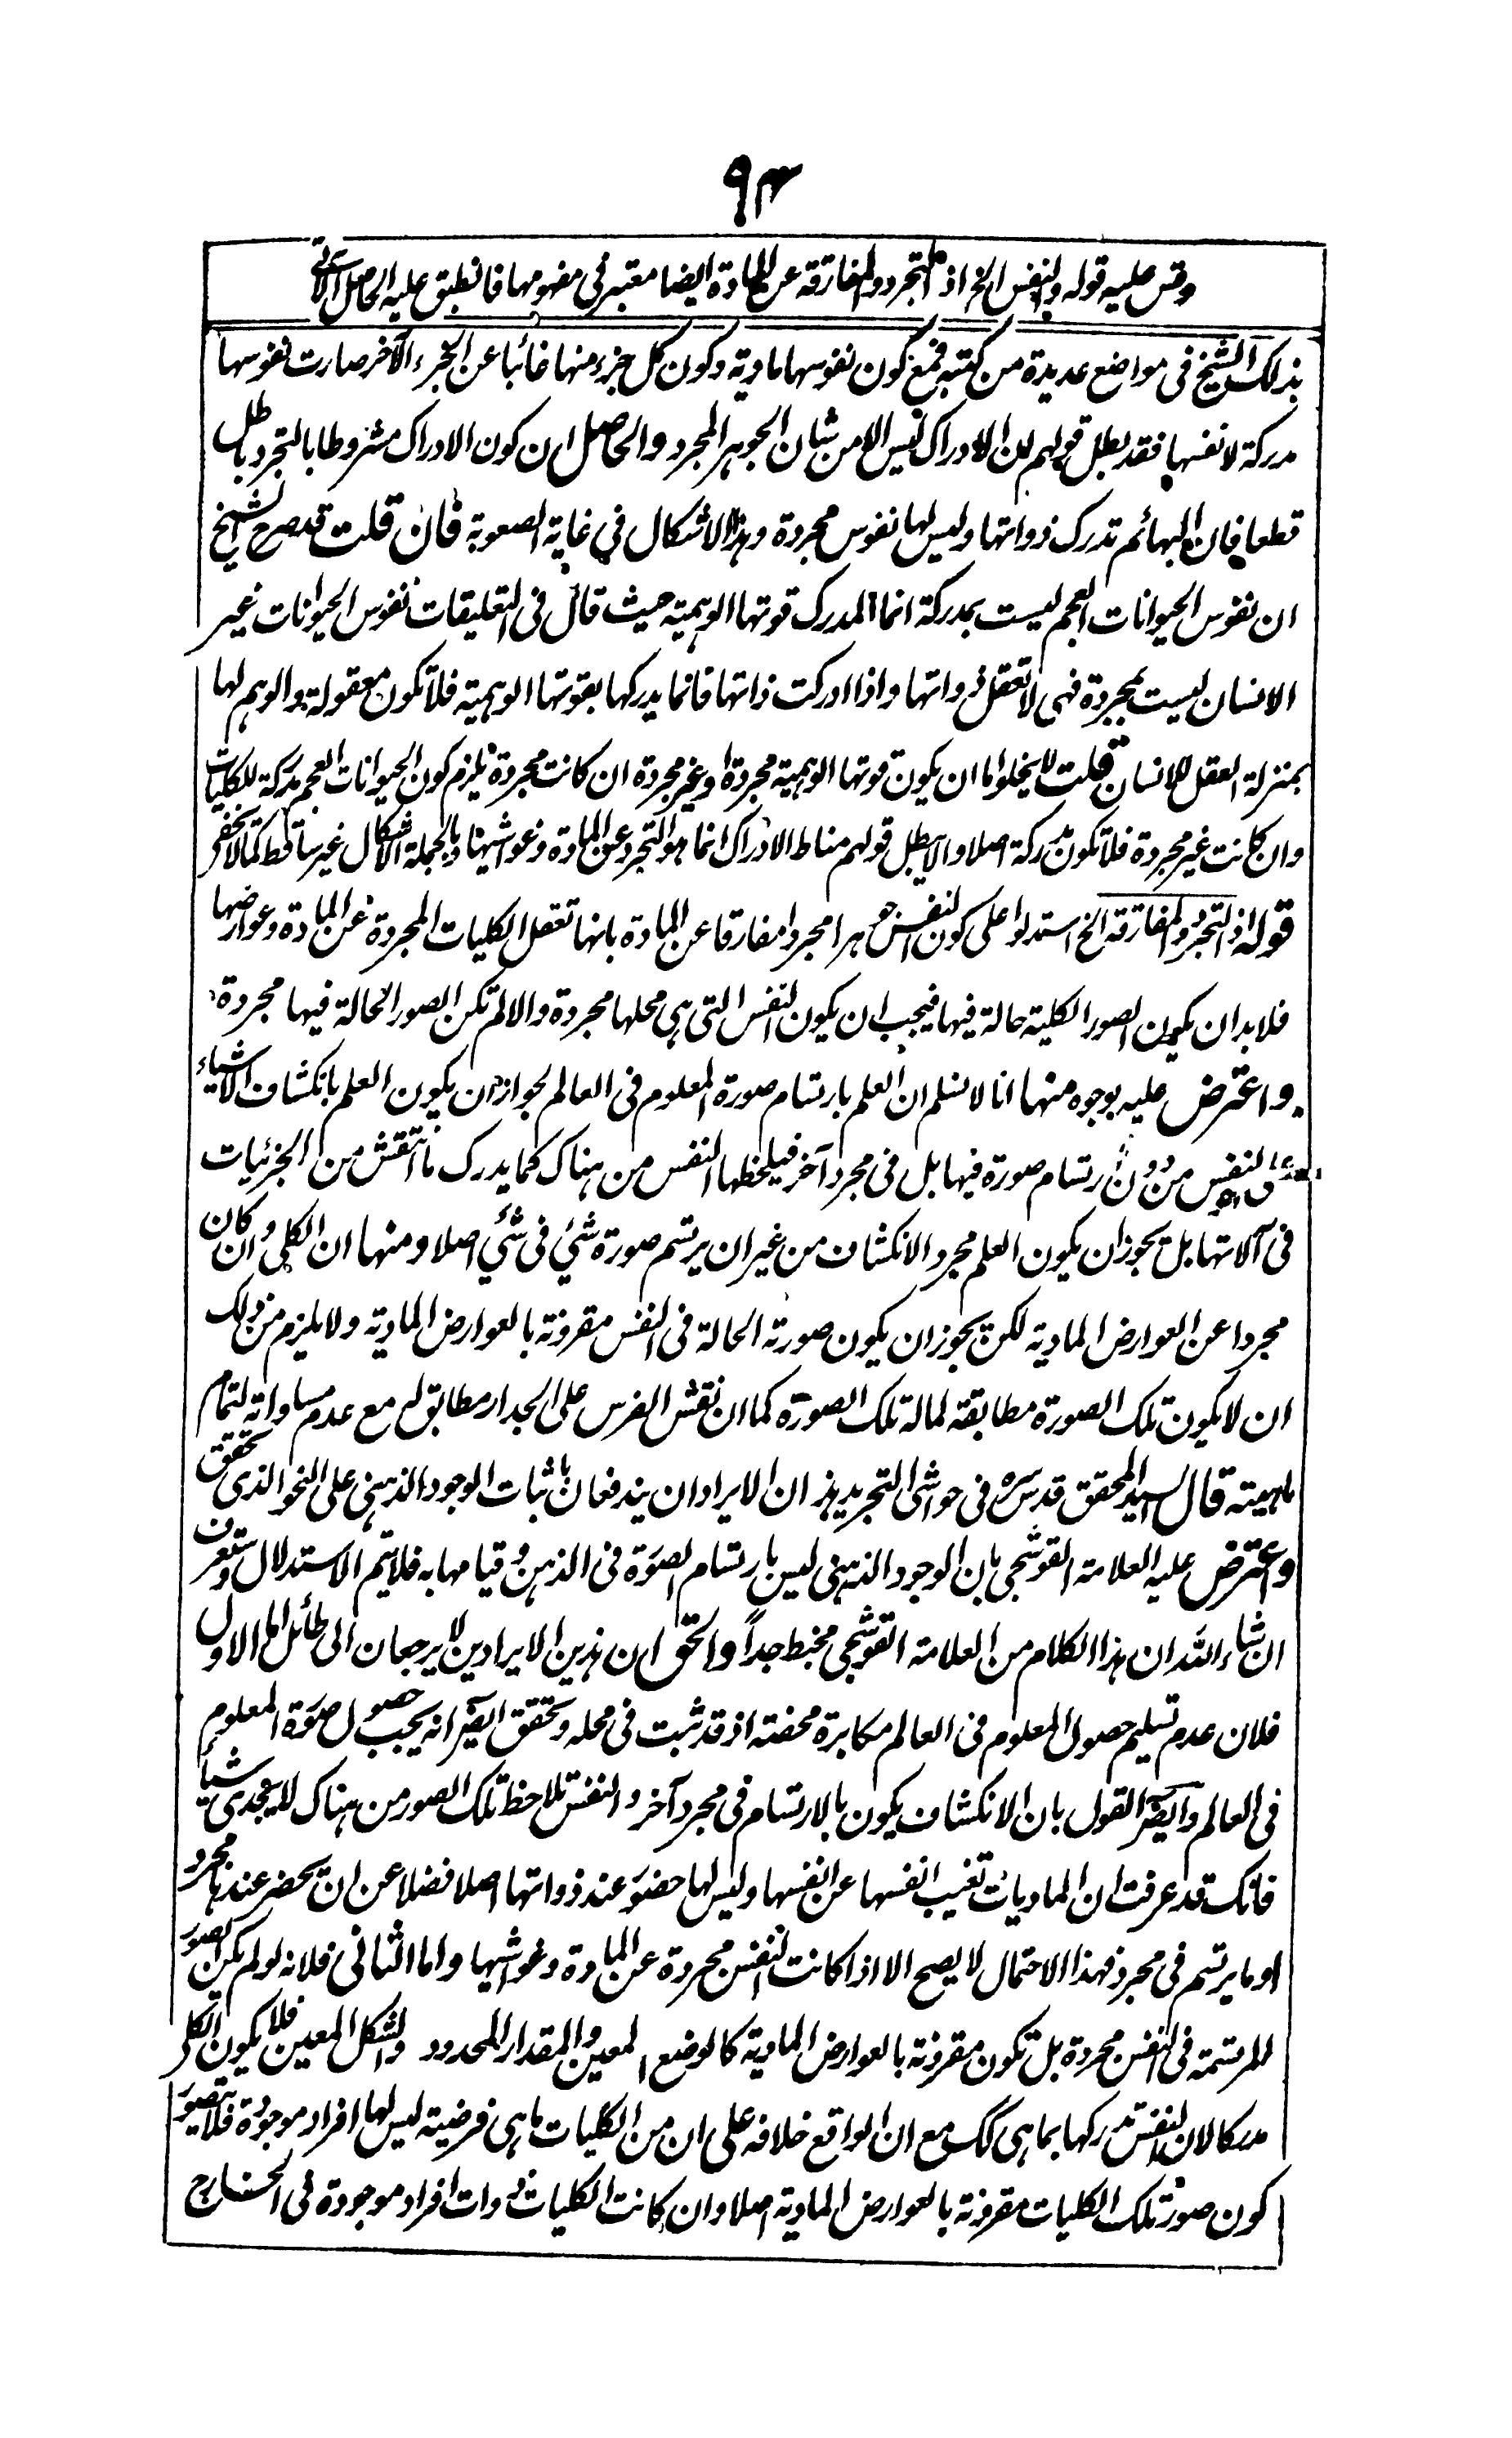 ٩٤
وقس عليه قوله والنفس الخ اذ التجرد والمفارقة عن المادة ايضا معتبر فى مفهومها فانطبق عليه الحاصل الآتي
بذلك الشيخ فى مواضع عديدة من كتبه فمع كون نفوسها مادية وكون كل جزء منها غائبا عن الجزء الآخر صارت نفوسها
مدركة لانفسها فقد بطل قولهم ان الادراك ليس الا من شان الجوهر المجرد والحاصل ان كون الادراك مشروطا بالتجرد باطل
قطعا فان البهائم تدرك ذواتها وليس لها نفوس مجردة وهذا الاشكال في غاية الصعوبة فان قلت قد صرح الشيخ
ان نفوس الحيوانات العجم ليست بمدركة انما المدرك قوتها الوهمية حيث قال فى التعليقات نفوس الحيوانات غير
الانسان ليست بمجردة فهى لا تعقل ذواتها واذا ادركت ذاتها فانما يدركها بقوتها الوهمية فلا تكون معقولة والوهم لها
بمنزلة العقل للانسان قلت لا يخلو اما ان يكون قوتها الوهمية مجردة او غير مجردة ان كانت مجردة يلزم كون الحيوانات العجم مدركة للكليات
وان كانت غير مجردة فلا تكون مدركة اصلا والا يبطل قولهم مناط الادراك انما هو التجرد عن المادة وغواشيها وبالجملة الاشكال غير ساقط كما لا يخفى
قوله اذ التجرد والمفارقة الخ استدلوا على كون النفس جوهرا مجردا مفارقا عن المادة بانها تعقل الكليات المجردة عن المادة وعوارضها
فلا بد ان يكون الصور الكلية حالة فيها فيجب ان يكون النفس التى هى محلها مجردة والا لم تكن الصور الحالة فيها مجردة
واعترض عليه بوجوه منها انا لا نسلم ان العلم بارتسام صورة المعلوم فى العالم لجواز ان يكون العلم بانكشاف الاشياء
على النفس من دون ارتسام صورة فيها بل فى مجرد آخر فيلحظها النفس من هناك كما يدرك ما انتقش من الجزئيات
فى آلاتها بل يجوز ان يكون العلم مجرد الانكشاف من غير ان يرتسم صورة شئ فى شئ اصلا ومنها ان الكلى وان كان
مجردا عن العوارض المادية لكن يجوز ان يكون صورته الحالة فى النفس مقرونة بالعوارض المادية ولا يلزم من ذلك
ان لا يكون تلك الصورة مطابقة لما له تلك الصورة كما ان نقش الفرس على الجدار مطابق له مع عدم مساواته لتمام
ماهيته قال السيد المحقق قدس سره فى حواشى التجريد هذان الايرادان يندفعان باثبات الوجود الذهنى على النحو الذى تحقق
واعترض عليه العلامة القوشجى بان الوجود الذهنى ليس بارتسام الصورة فى الذهن وقيامها به فلا يتم الاستدلال وستعرف
ان شاء الله ان هذا الكلام من العلامة القوشجى مخبط جدا والحق ان هذين الايرادين لا يرجعان الى طائل اما الاول
فلان عدم تسليم حصول المعلوم فى العالم مكابرة محضة اذ قد ثبت فى محله وتحقق ايضا انه يجب حصول صورة المعلوم
فى العالم وايضا القول بان الانكشاف يكون بالارتسام فى مجرد آخر والنفس تلاحظ تلك الصور من هناك لا يجدى شيأ
فانك قد عرفت ان الماديات تغيب انفسها عن انفسها وليس لها حضور عند ذواتها اصلا فضلا عن ان يحضر عندها مجرد
او ما يرتسم فى مجرد فهذا الاحتمال لا يصح الا اذا كانت النفس مجردة عن المادة وغواشيها واما الثانى فلانه لو لم يكن الصور
المرتسمة فى النفس مجردة بل تكون مقرونة بالعوارض المادية كالوضع المعين والمقدار المحدود والشكل المعين فلا يكون الكلى
مدركا لان النفس تدركها بما هى كك مع ان الواقع خلافه على ان من الكليات ما هى فرضية ليس لها افراد موجودة فلا يتصور
كون صورة تلك الكليات مقرونة بالعوارض المادية اصلا وان كانت الكليات ذوات افراد موجودة فى الخارج